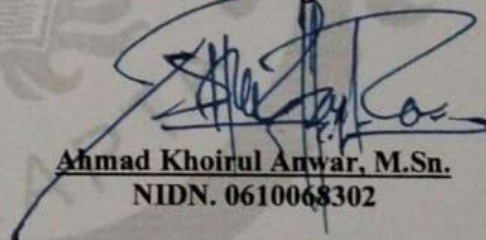 Ahmad Khoirul Anwar, M.Sn.
NIDN. 0610068302